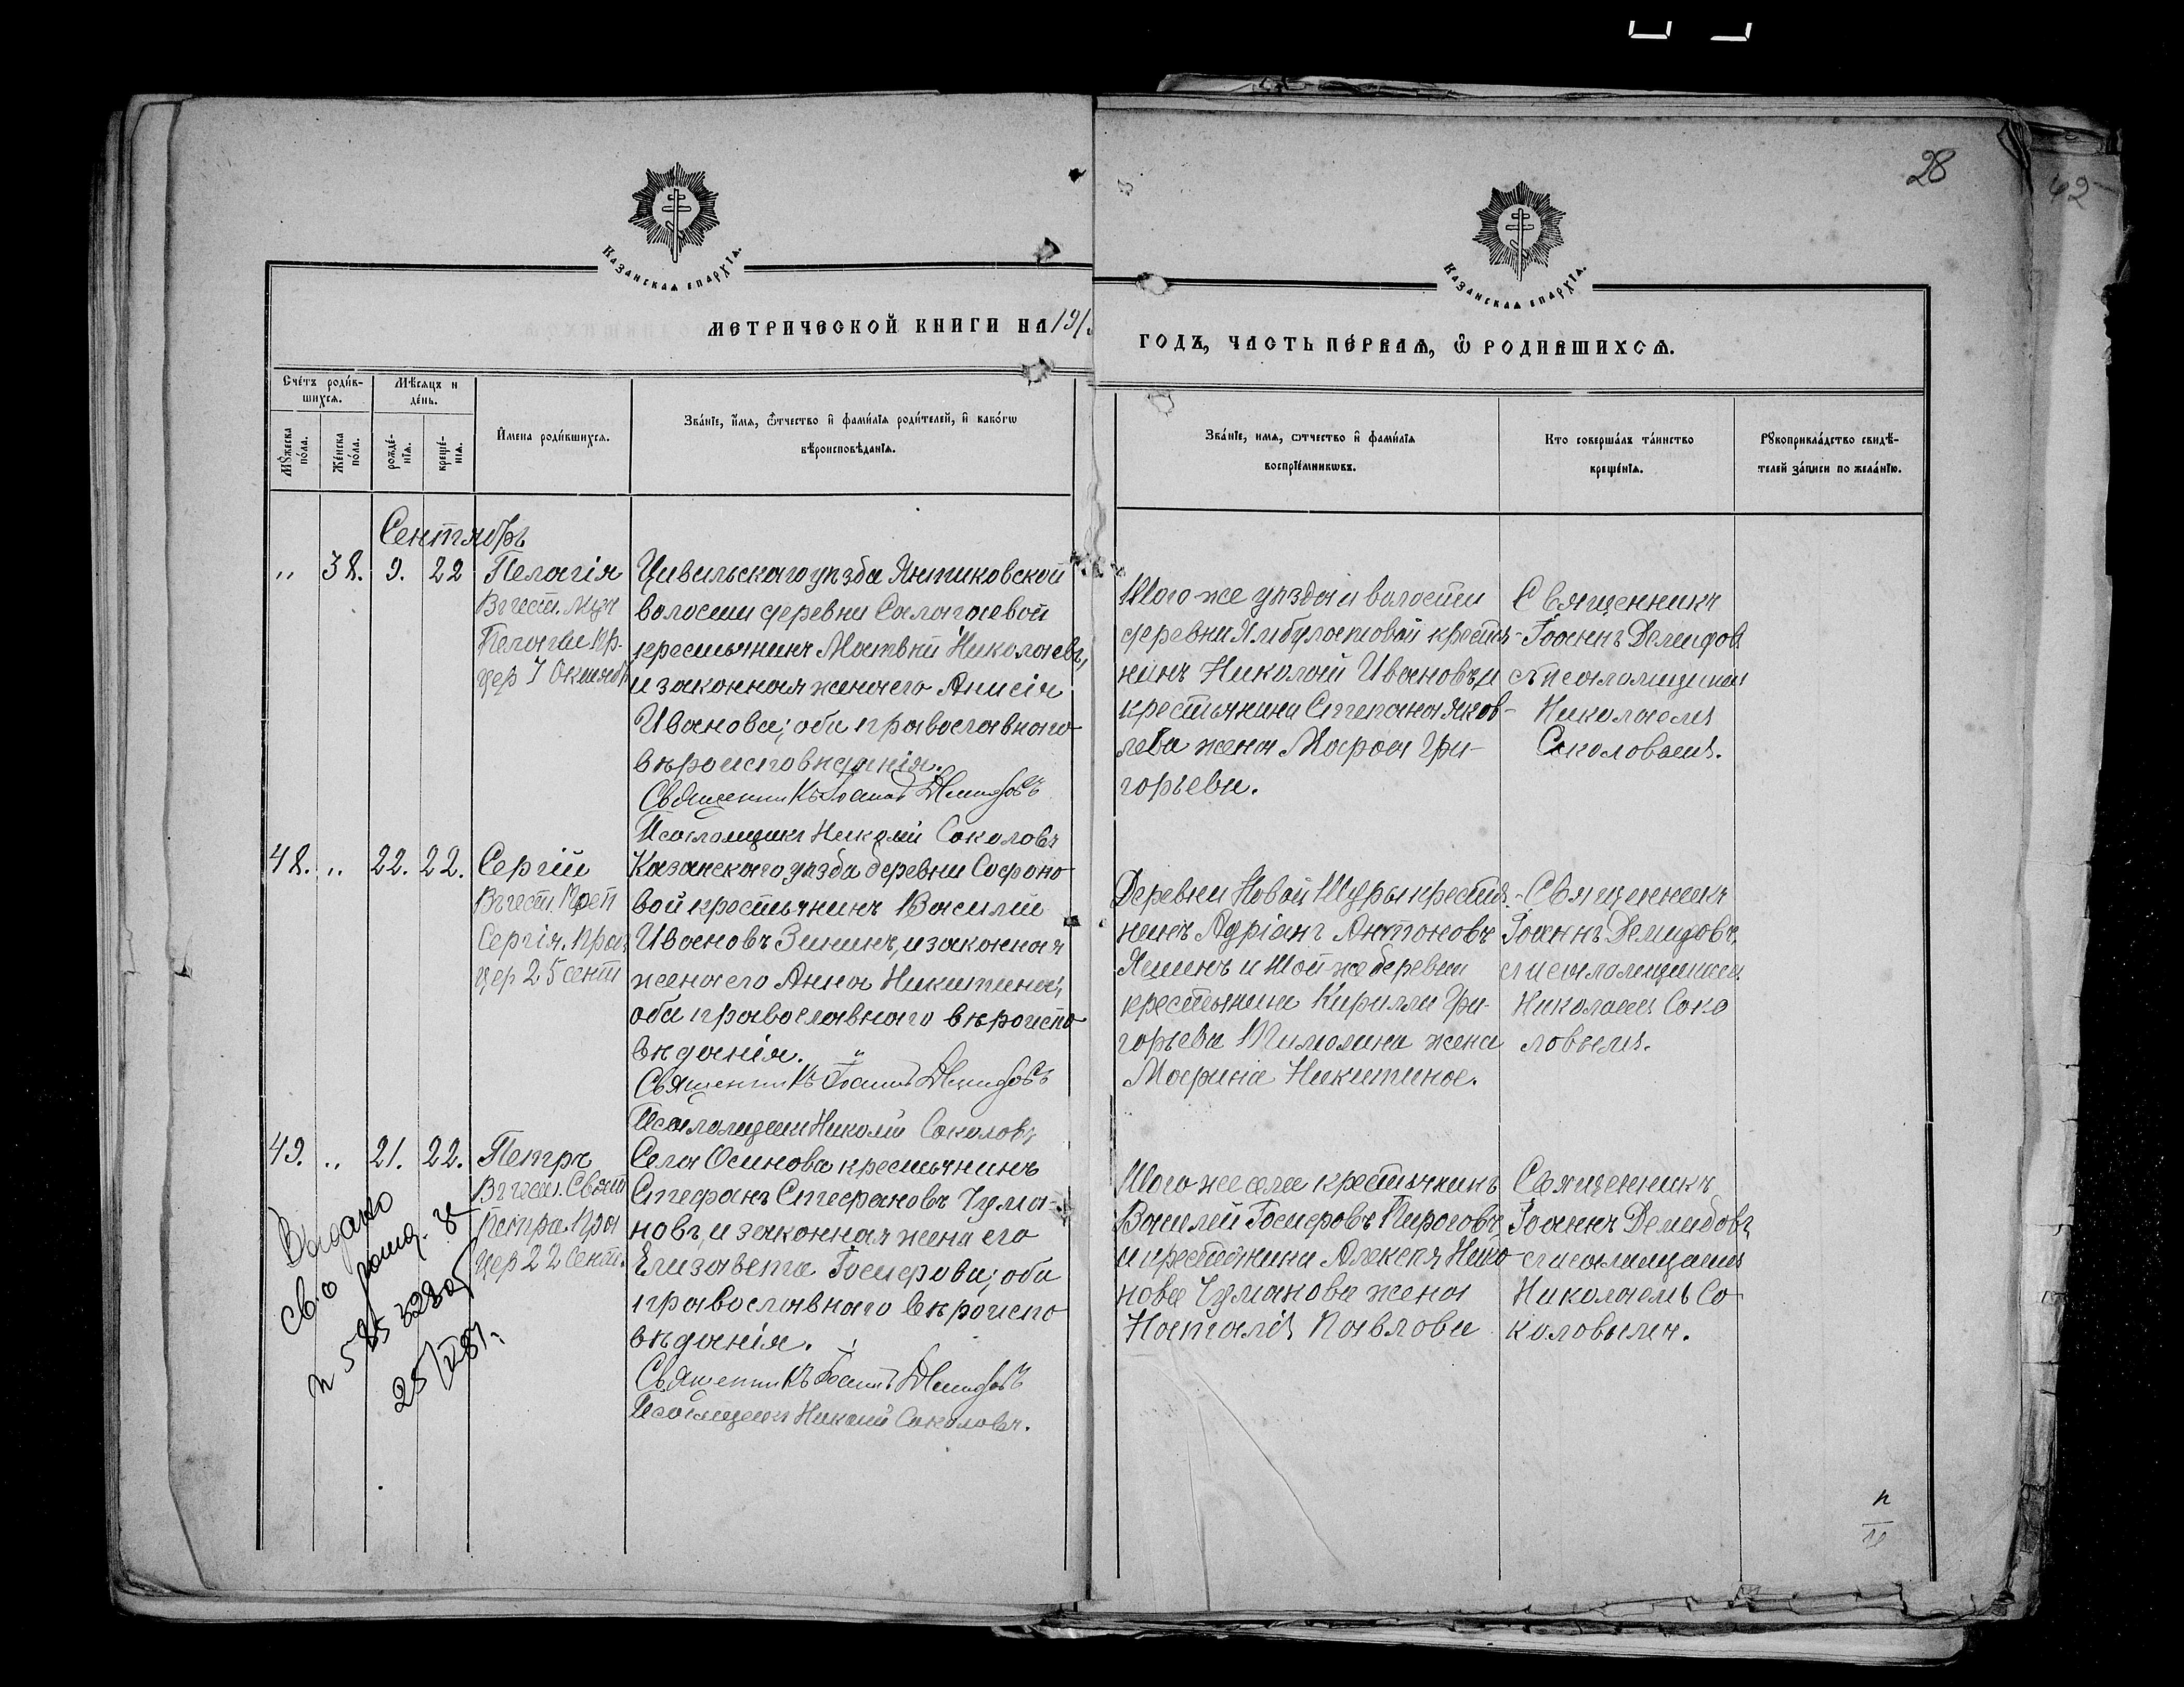 28
42
Казанская епархїѧ.
Казанская епархїѧ.
МЕТРИЧЕСКОЙ КНИГИ НА 191
ГОДЪ, ЧАСТЬ ПЕ́РВАѦ, Ѡ РОДИ́ВШИХСѦ.
Сче́тъ роди́в-
шихсѧ.
Мꙋ́жеска по́ла.
Же́нска по́ла.
Мѣ́сяцъ и
де́нь.
рожде́-
нїѧ.
креще́-
нїѧ.
И́мена роди́вшихсѧ.
Зва́нїе, и́мѧ, ѻ́тчество и҆ фами́лїѧ роди́телей, и҆ како́гѡ
вѣроисповѣ́данїѧ.
Зва́нїе, имѧ, ѻтчество и҆ фами́лїѧ
воспрїе́мникѡвъ.
Кто соверша́лъ та́инство
креще́нїѧ.
Рꙋкоприкла́дство свидѣ́-
телей за́писи по жела́нїю.
Сентябрь
" 38. 9. 22 Пелагія
Въ чест. Муч
Пелагіи пр.
цер 7 Октяб
Цивильскаго уѣзда Янтиковской
волости деревни Салагаевой
крестьянинъ Матвѣй Николаевъ,
и законная жена его Анисія
Иванова; оба православнаго
вѣроисповѣданія.
Священникъ Іоаннъ Демидовъ
Псаломщикъ Николай Соколовъ
Того же уѣзда и волости
деревни Ямбулатовой крестья-
нинъ Николай Ивановъ, и
крестьянина Степана Яков-
лева жена Марфа Гри-
горьева.
Священникъ
Іоаннъ Демидов
съ псаломщикомъ
Николаемъ
Соколовымъ.
48. " 22. 22. Сергій
Въ чест. Преп
Сергія. Праз
цер 25 сент
Казанскаго уѣзда деревни Софоно-
вой крестьянинъ Василій
Ивановъ Зининъ, и законная
жена его Анна Никитина;
оба православнаго вѣроиспо-
вѣданія.
Священникъ Іоаннъ Демидовъ
Псаломщикъ Николай Соколовъ
Деревни Новой Щуры крестья-
нинъ Адріанъ Антоновъ
Яшинъ и той-же деревни
крестьянина Кирилла Гри-
горьева Тималина жена
Марина Никитина.
Священникъ
Іоаннъ Демидовъ
съ псаломщикомъ
Николаемъ Соко
ловымъ.
49. " 21. 22. Петръ
Въ чест. Свят
Петра. Праз
цер 22 Сент.
Села Осинова крестьянинъ
Стефанъ Стефановъ Чума-
новъ, и законная жена его
Елизавета Іосифова; оба
православнаго вѣроиспо-
вѣданія.
Священникъ Іоаннъ Демидовъ
Псаломщикъ Николай Соколовъ.
Того же села крестьянинъ
Василій Іосифовъ Пироговъ,
и крестьянина Алексѣя Нико
нова Чуманова жена
Наталія Павлова
Священникъ
Іоаннъ Демидовъ
съ псаломщикомъ
Николаемъ Со-
коловымъ.
Выдано
св. о рожд.